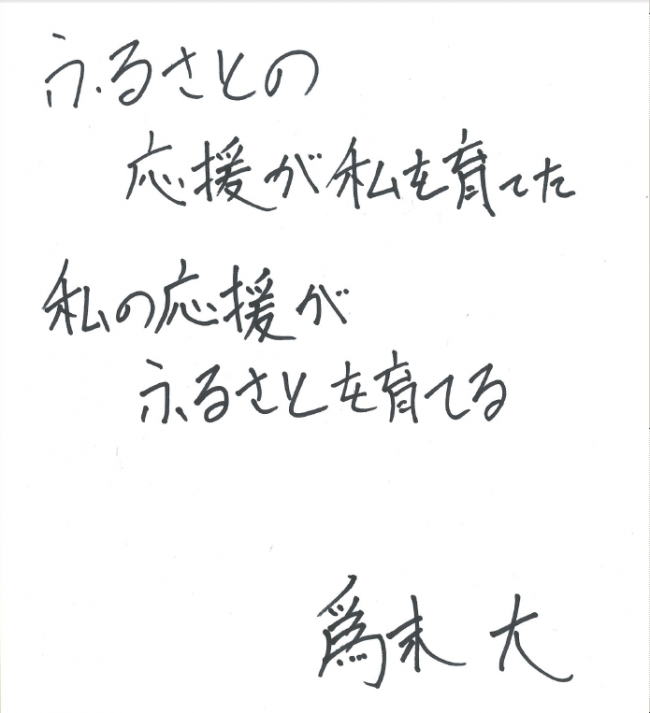 ふるさとの
応援が私を育てた
私の応援が
ふるさとを育てる
爲末 大